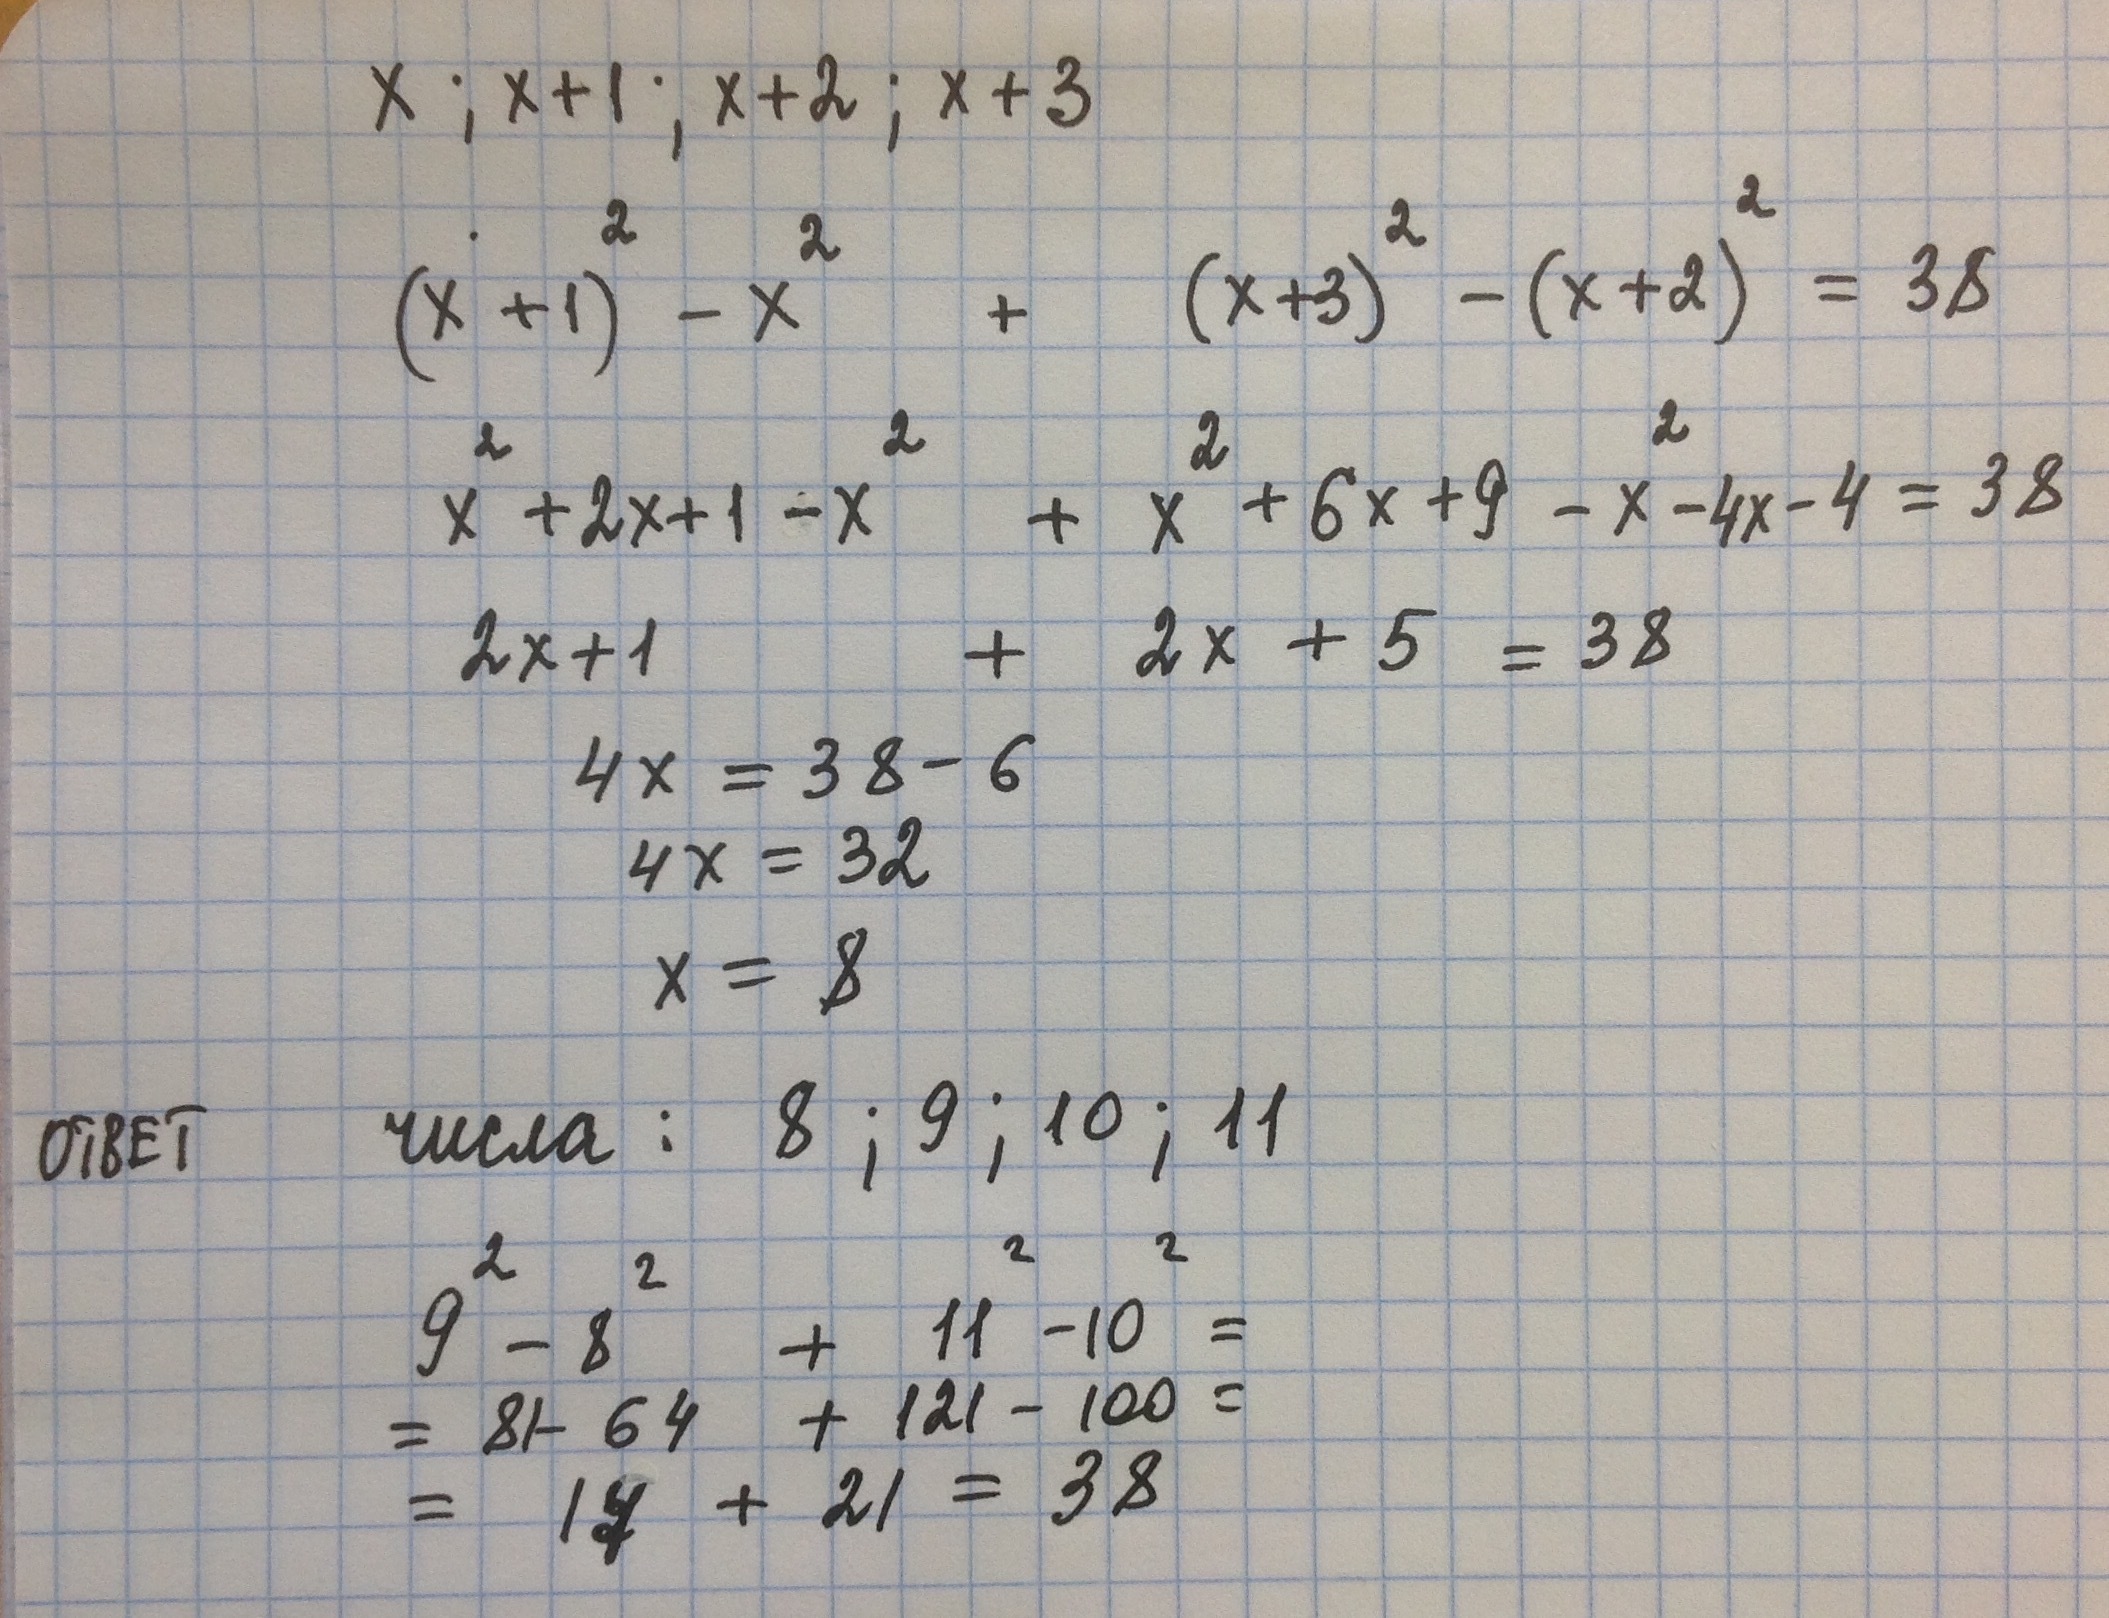 x ; x+1 ; x+2 ; x+3
(x+1)² - x² + (x+3)² - (x+2)² = 38
x² + 2x+1 - x² + x² + 6x + 9 - x² - 4x - 4 = 38
2x+1 + 2x + 5 = 38
4x = 38 - 6
4x = 32
x = 8
ОТВЕТ числа : 8 ; 9 ; 10 ; 11
9² - 8² + 11² - 10² =
= 81 - 64 + 121 - 100 =
= 17 + 21 = 38